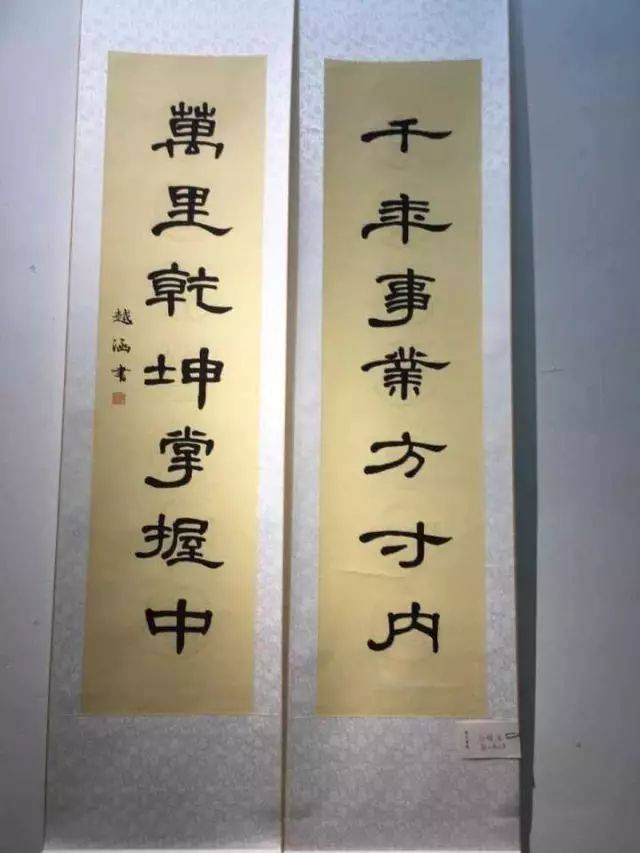 千年事業方寸内
萬里乾坤掌握中
越涵書